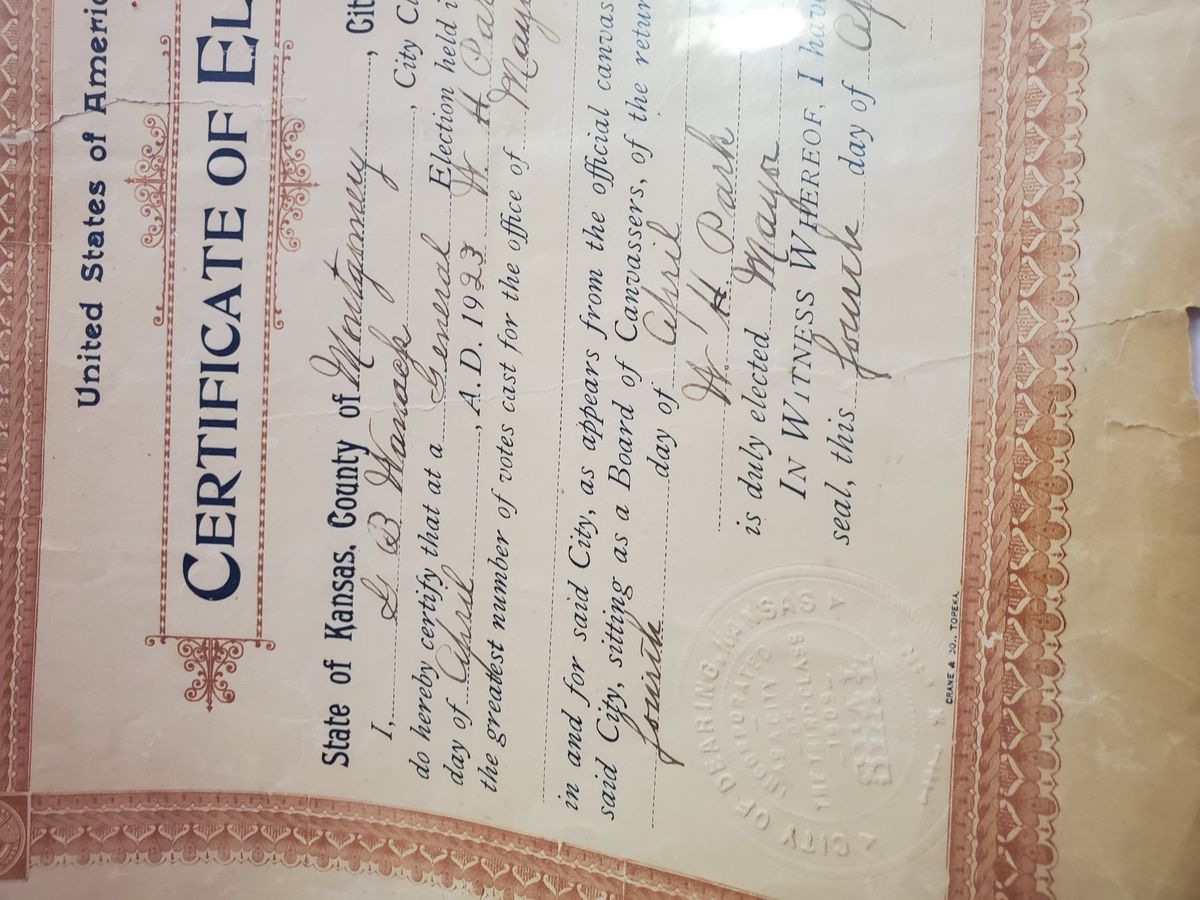 United States of Americ
CERTIFICATE OF EL
State of Kansas, County of Montgomery, Cit
I, G B Wamack, City Cl
do hereby certify that at a General Election held i
day of April, A. D. 1923 W. H. Pas
the greatest number of votes cast for the office of Mayo
in and for said City, as appears from the official canvas
said City, sitting as a Board of Canvassers, of the retur
fourth day of April
W. H. Pash
is duly elected Mayor
IN WITNESS WHEREOF, I have
seal, this fourth day of Ap
CITY OF DEARING, KANSAS
INCORPORATED
AS A CITY
OF
THE THIRD CLASS
1909
SEAL
CRANE & CO., TOPEKA